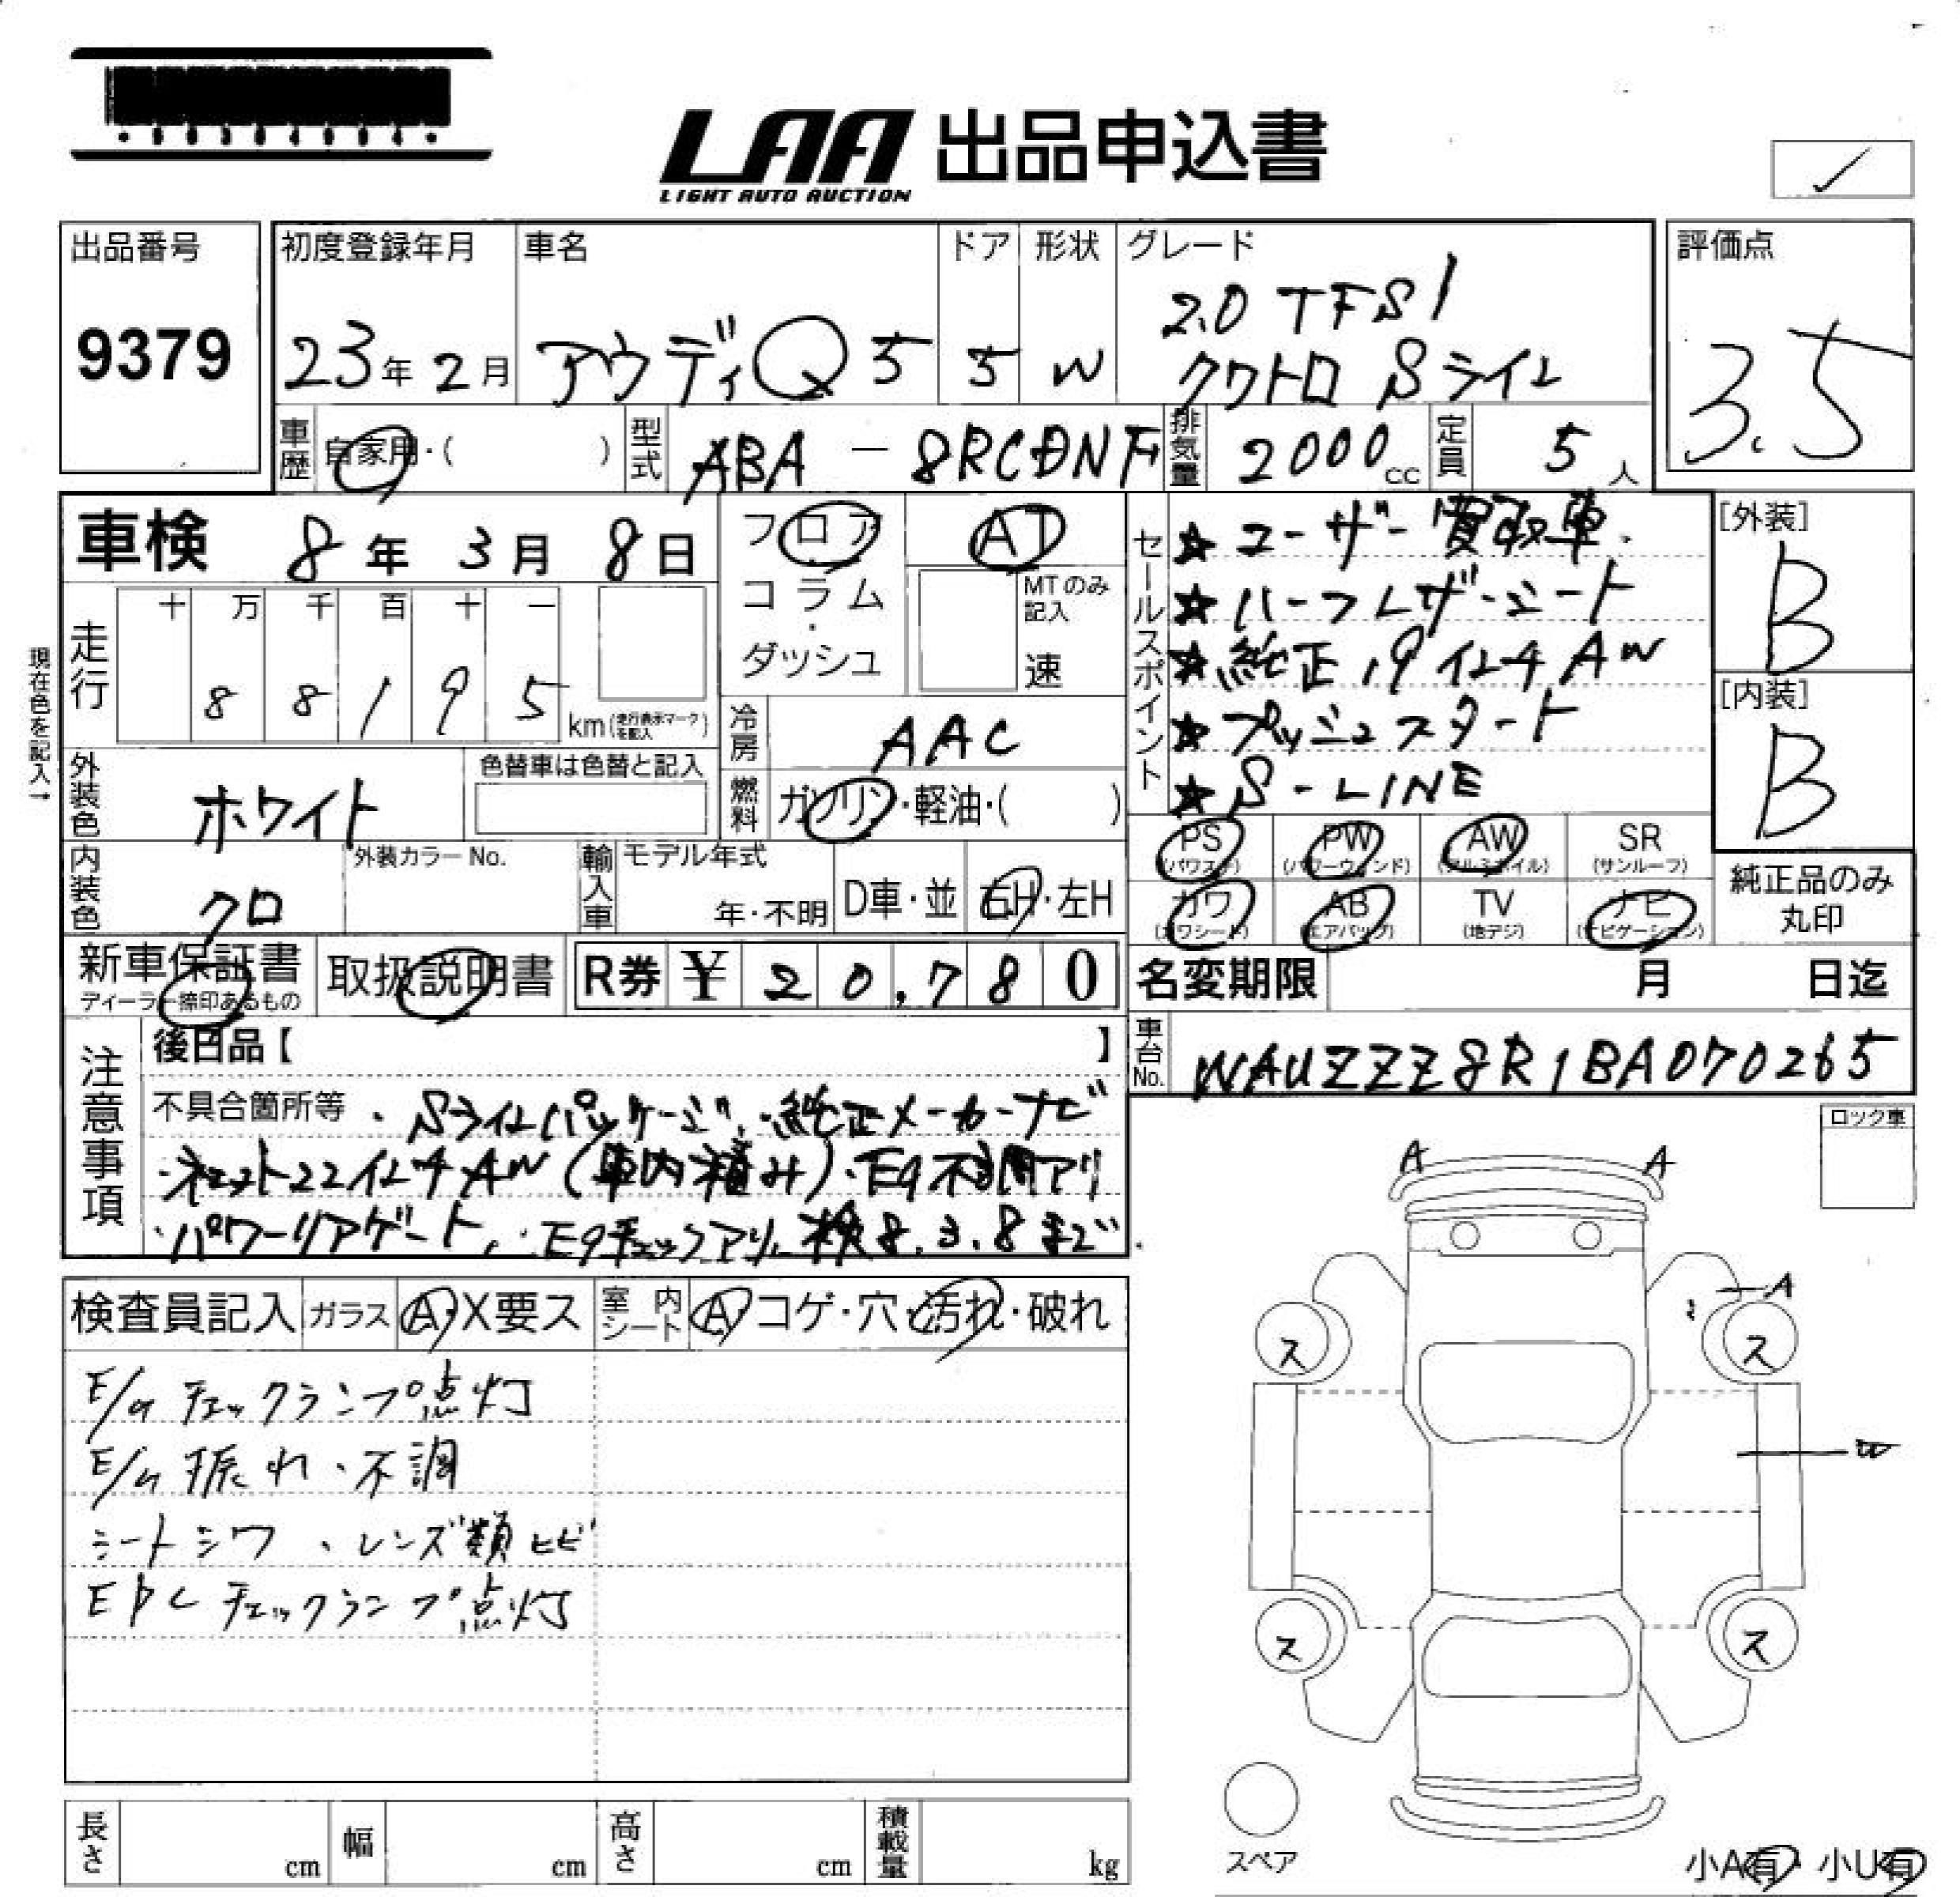 LAA 出品申込書
LIGHT AUTO AUCTION
出品番号
9379
初度登録年月
23年2月
車名
アウディQ5
ドア
5
形状
W
グレード
2.0 TFSI
クワトロ Sライン
評価点
3.5
車歴 自家用・( )
型式 ABA-8RCDNF
排気量 2000cc
定員 5人
車検 8年3月8日
フロア
コラム
・
ダッシュ
AT
MTのみ記入
速
現在色を記入→
走行
十 万 千 百 十 一
8 8 1 9 5 km(走行表示マークを記入)
冷房 AAC
燃料 ガソリン・軽油・( )
外装色 ホワイト
色替車は色替と記入
内装色 クロ
外装カラーNo.
輸入車 モデル年式
年・不明
D車・並
右H・左H
セールスポイント
★ユーザー買取車.
★ハーフレザーシート
★純正19インチAW
★プッシュスタート
★S-LINE
[外装]
B
[内装]
B
PS (パワステ)
PW (パワーウィンド)
AW (アルミホイル)
SR (サンルーフ)
カワ (カワシート)
AB (エアバッグ)
TV (地デジ)
ナビ (ナビゲーション)
純正品のみ
丸印
新車保証書
ディーラー捺印あるもの
取扱説明書
R券 ¥ 20,780
名変期限 月 日迄
車台No. WAUZZZ8R1BA070265
注意事項
後日品【 】
不具合箇所等 ・Sラインパッケージ・純正メーカーナビ
・ネット22インチAW(車内積み)・Eg不調アリ
・パワーリアゲート,・Egチェックアリ 検8.3.8まで.
ロック車
検査員記入
ガラス A・X要ス
室内シート A・コゲ・穴・汚れ・破れ
E/G チェックランプ点灯
E/G 振れ、不調
シートシワ、レンズ類ヒビ
EPC チェックランプ点灯
A A
A
ス ス
W
ス ス
スペア
小A有・小U有
長さ cm
幅 cm
高さ cm
積載量 kg